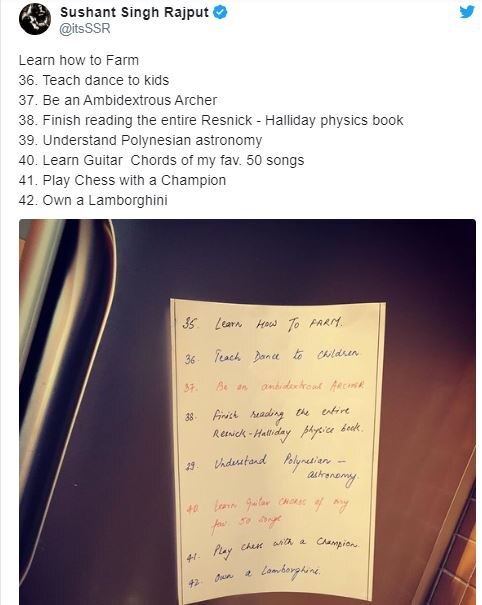 Sushant Singh Rajput
@itsSSR
Learn how to Farm
36. Teach dance to kids
37. Be an Ambidextrous Archer
38. Finish reading the entire Resnick - Halliday physics book
39. Understand Polynesian astronomy
40. Learn Guitar  Chords of my fav. 50 songs
41. Play Chess with a Champion
42. Own a Lamborghini
35. Learn HOW To FARM.
36. Teach Dance to Children.
37. Be an ambidextrous ARCHER
38. Finish reading the entire
Resnick-Halliday physics book.
39. Understand Polynesian –
astronomy.
40 Learn Guitar CHORDS of my
fav. 50 songs
41. Play chess with a Champion.
42. Own a Lamborghini.